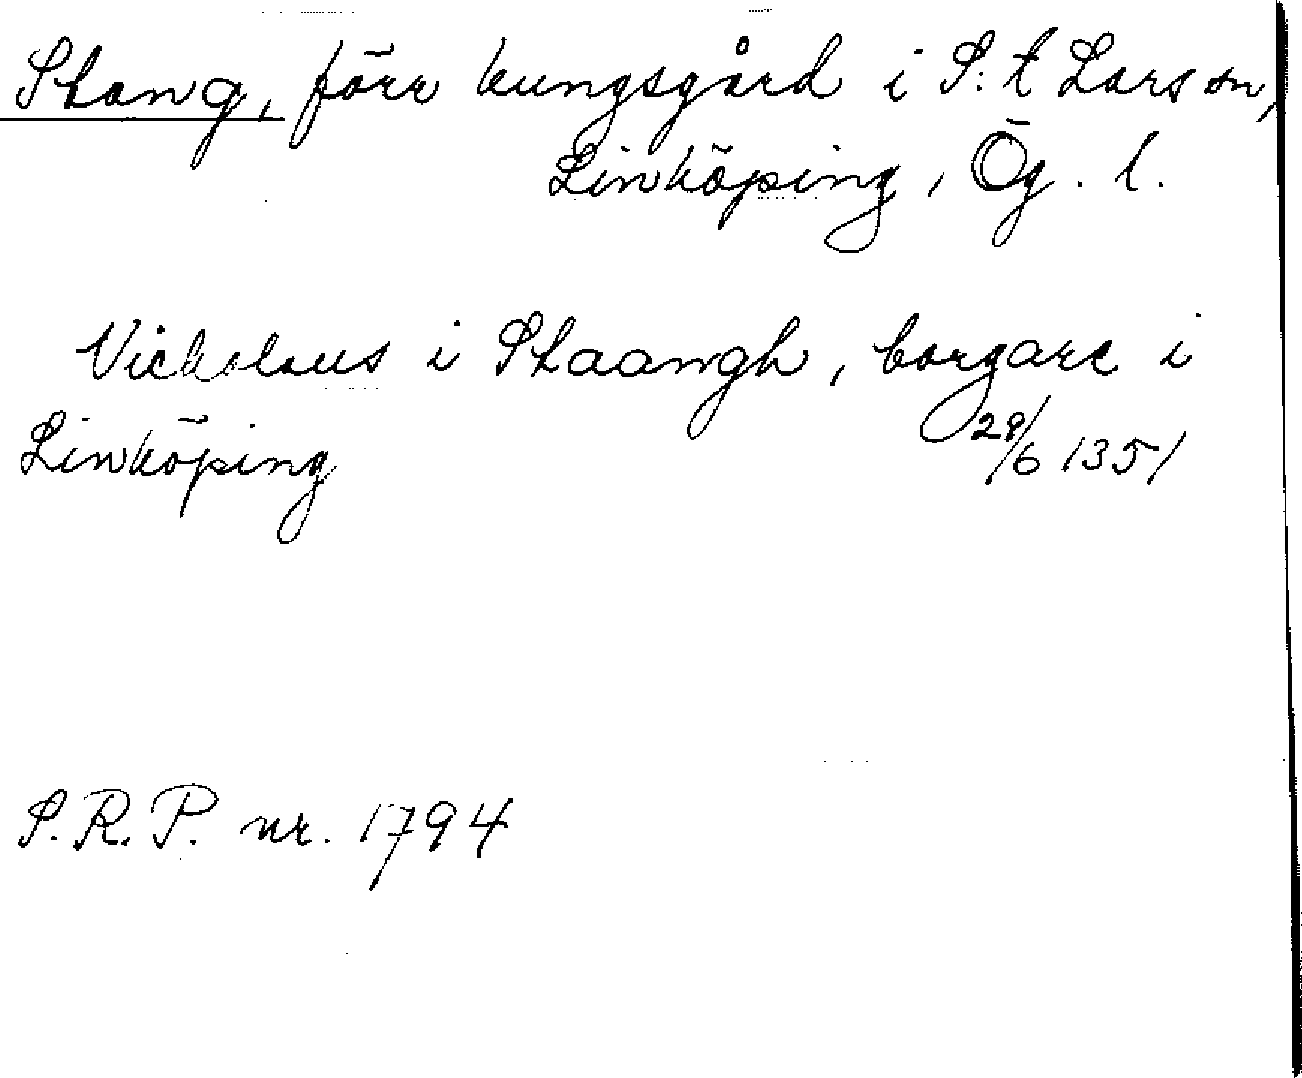 Stang, förr kungsgård i S:t Lars sn,
Linköping, Ög. l.
Nicholaus i Staangh, borgare i
Linköping 29/6 1351
S.R.P. nr. 1794